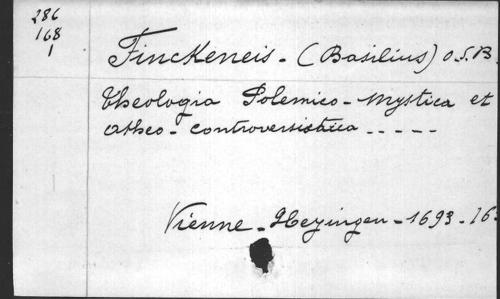 286
168
1
Finckeneis - (Basilius) O.S.B.
Theologia Polemico - Mystica et
Atheo - Controversistica - - - - -
Vienne - Heyinger - 1693 - 16